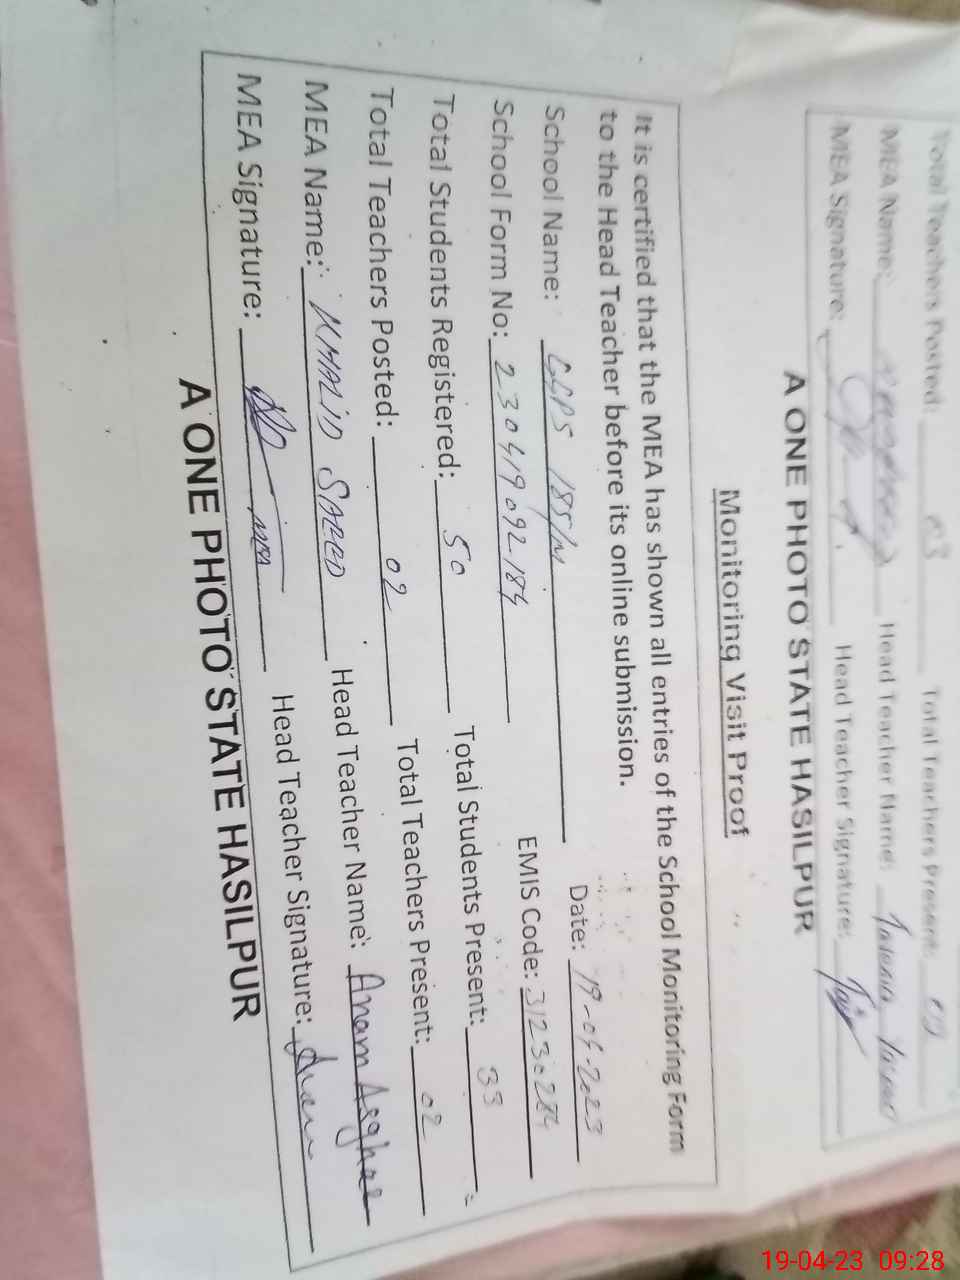 Total Teachers Posted: 03 Total Teachers Present: 03
MEA Name: Head Teacher Name:
MEA Signature: Head Teacher Signature:
A ONE PHOTO STATE HASILPUR
Monitoring Visit Proof
It is certified that the MEA has shown all entries of the School Monitoring Form
to the Head Teacher before its online submission.
School Name: GGPS 185/M Date: 19-04-2023
School Form No: 230419092184 EMIS Code: 31230284
Total Students Registered: 50 Total Students Present: 33
Total Teachers Posted: 02 Total Teachers Present: 02
MEA Name: KHALID SAEED Head Teacher Name: Anam Asghar
MEA Signature: MEA Head Teacher Signature: Anam
A ONE PHOTO STATE HASILPUR
19-04-23 09:28